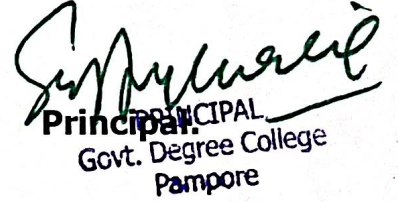 Principal.
PRINCIPAL
Govt. Degree College
Pampore